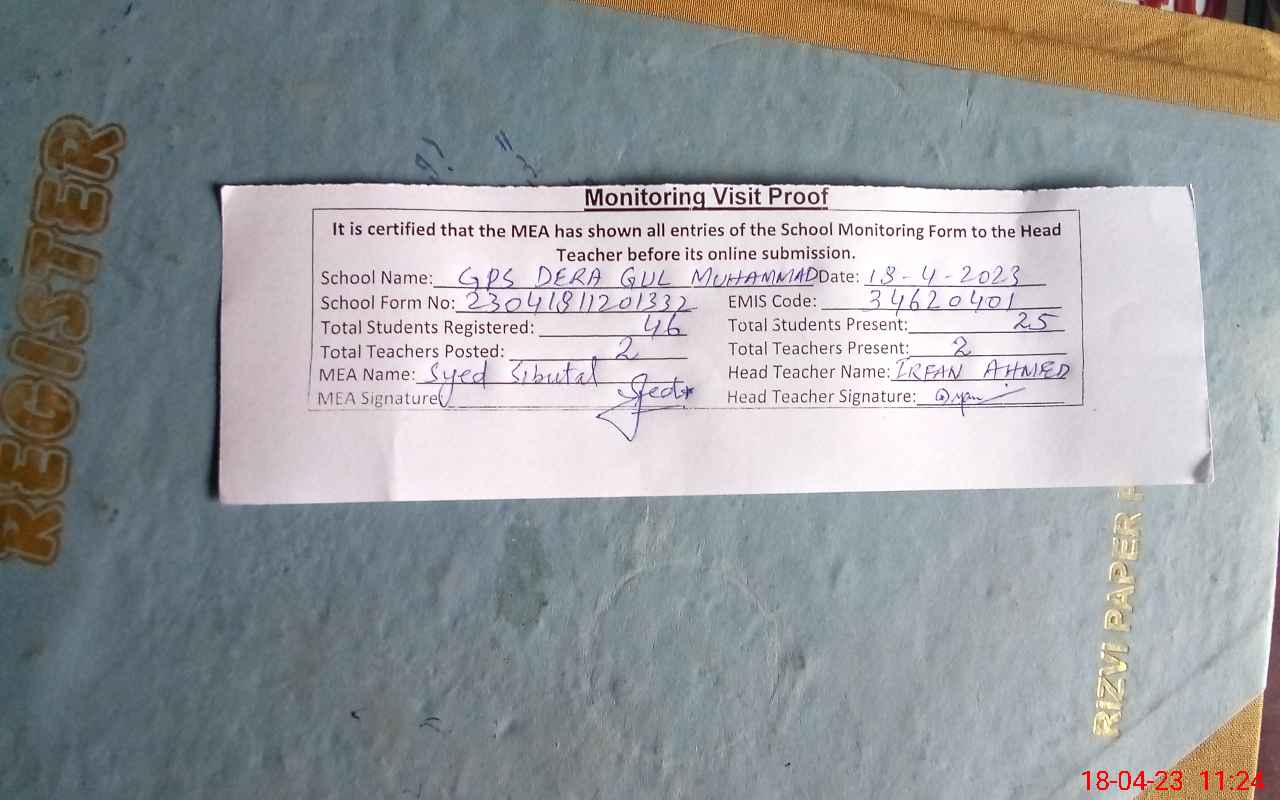 Monitoring Visit Proof
It is certified that the MEA has shown all entries of the School Monitoring Form to the Head
Teacher before its online submission.
School Name: GPS DERA GUL MUHAMMAD Date: 18-4-2023
School Form No: 23041811201332 EMIS Code: 34620401
Total Students Registered: 46 Total Students Present: 25
Total Teachers Posted: 2 Total Teachers Present: 2
MEA Name: Syed Sibutal Head Teacher Name: IRFAN AHMED
MEA Signature: Head Teacher Signature:
REGISTER
RIZVI PAPER
18-04-23 11:24